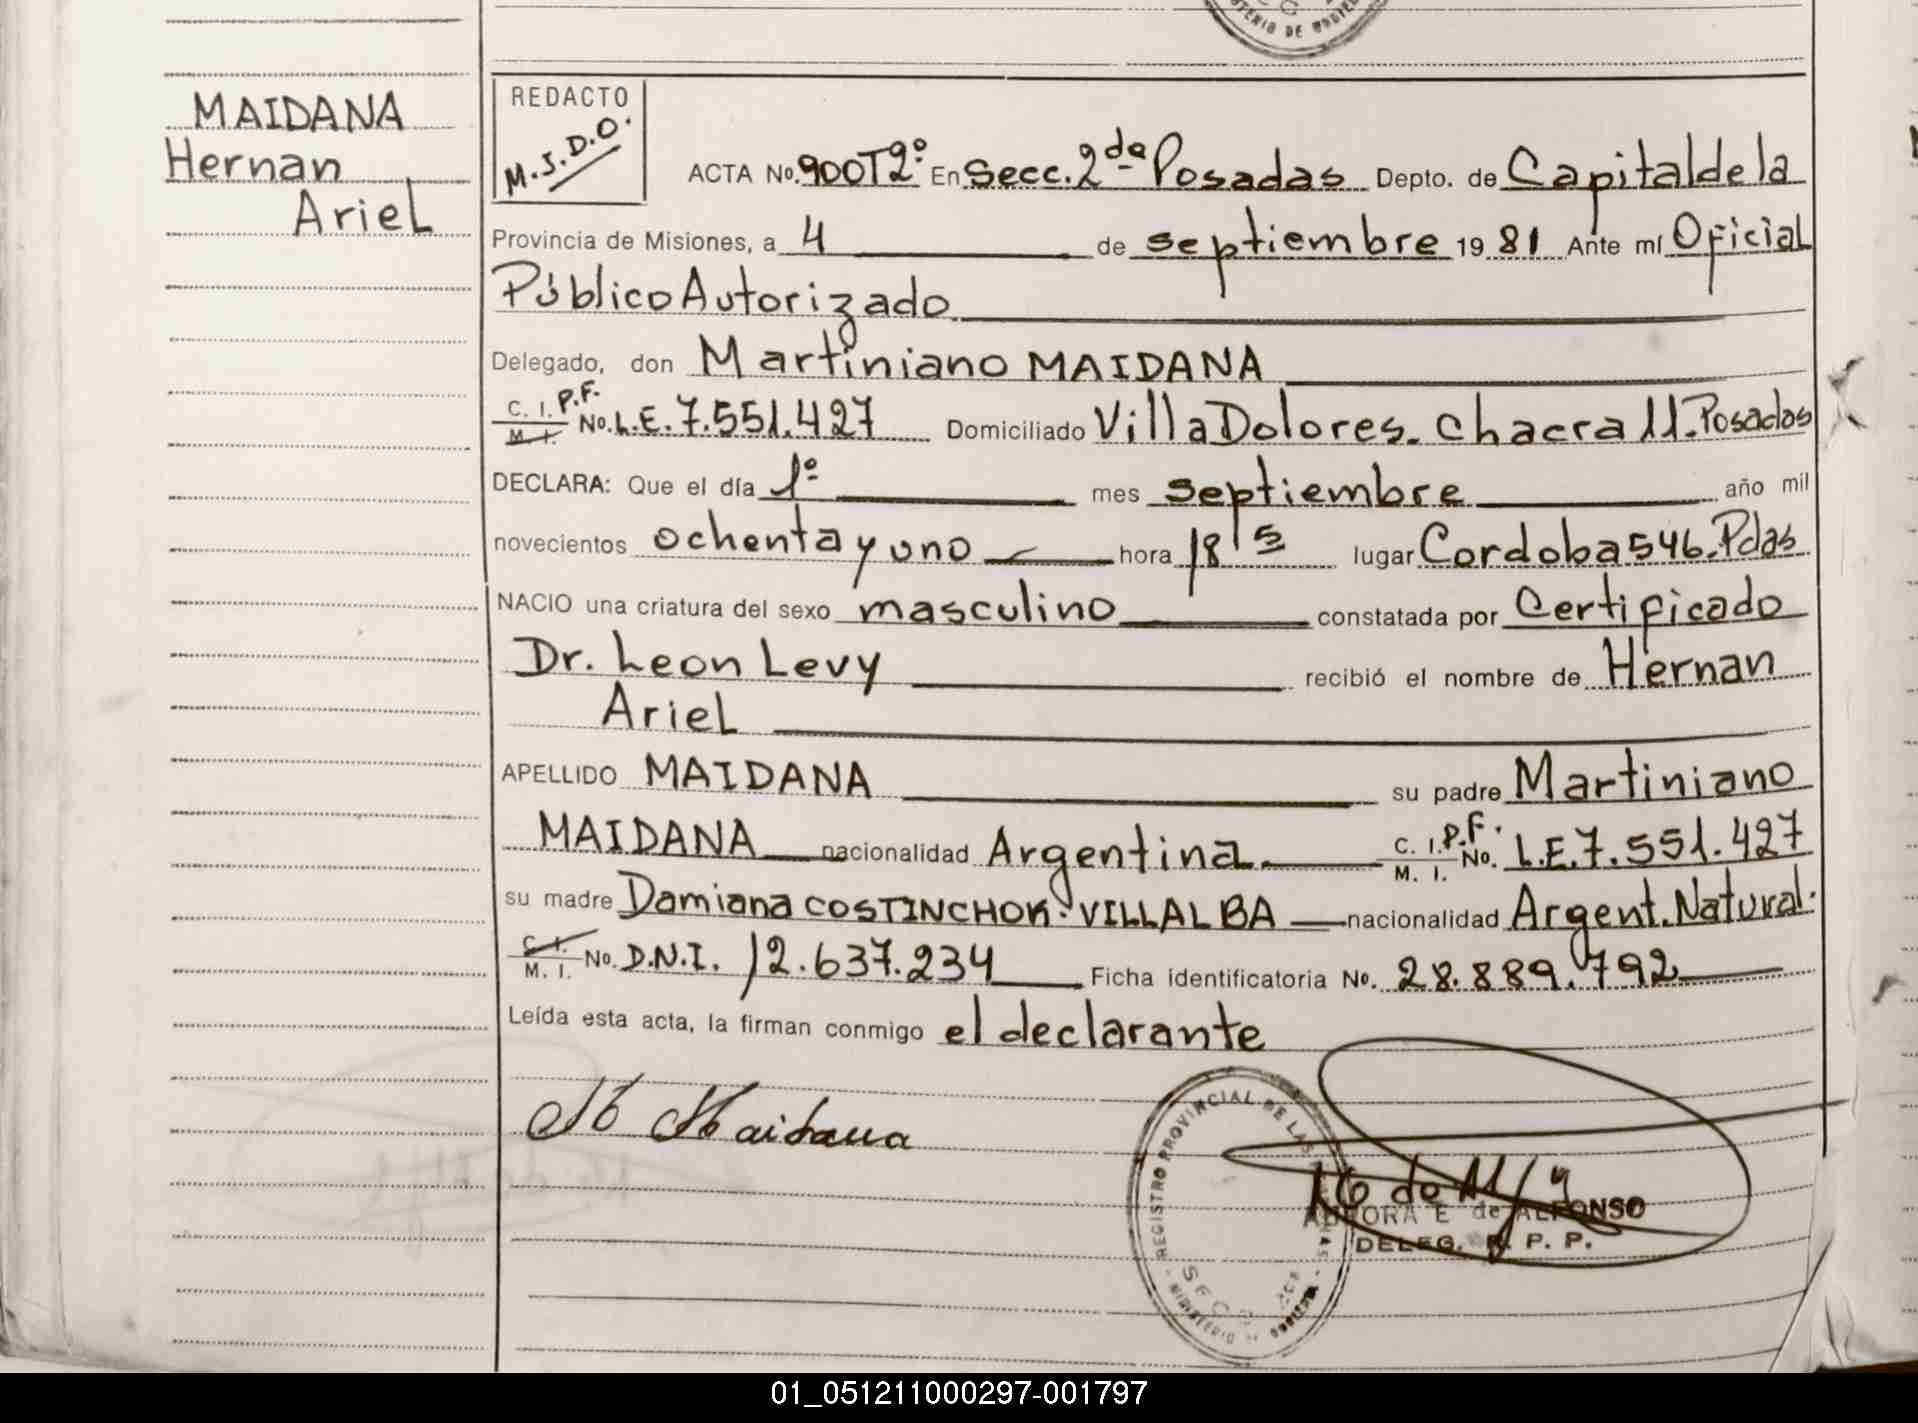 MAIDANA
Hernan
Ariel
REDACTO
M.J.D.O.
ACTA No. 900T2º En Secc. 2da Posadas Depto. de Capital de la
Provincia de Misiones, a 4 de septiembre 1981 Ante mí Oficial
Público Autorizado
Delegado, don Martiniano MAIDANA
C. I. P.F. M. I. No. L.E. 7.551.427 Domiciliado Villa Dolores. Chacra 11. Posadas
DECLARA: Que el día 1º mes septiembre año mil
novecientos ochenta y uno hora 18 15 lugar Cordoba 546. Pdas
NACIO una criatura del sexo masculino constatada por Certificado
Dr. Leon Levy recibió el nombre de Hernan
Ariel
APELLIDO MAIDANA su padre Martiniano
MAIDANA nacionalidad Argentina C. I. P.F. M. I. No. L.E. 7.551.427
su madre Damiana COSTINCHOK. VILLALBA nacionalidad Argent. Natural.
C. I. M. I. No. D.N.I. 12.637.234 Ficha identificatoria No. 28.889.792
Leída esta acta, la firman conmigo el declarante
M Maidana
REGISTRO PROVINCIAL DE LAS
AURORA E de ALFONSO
DELEG. R. P. P.
01_051211000297-001797